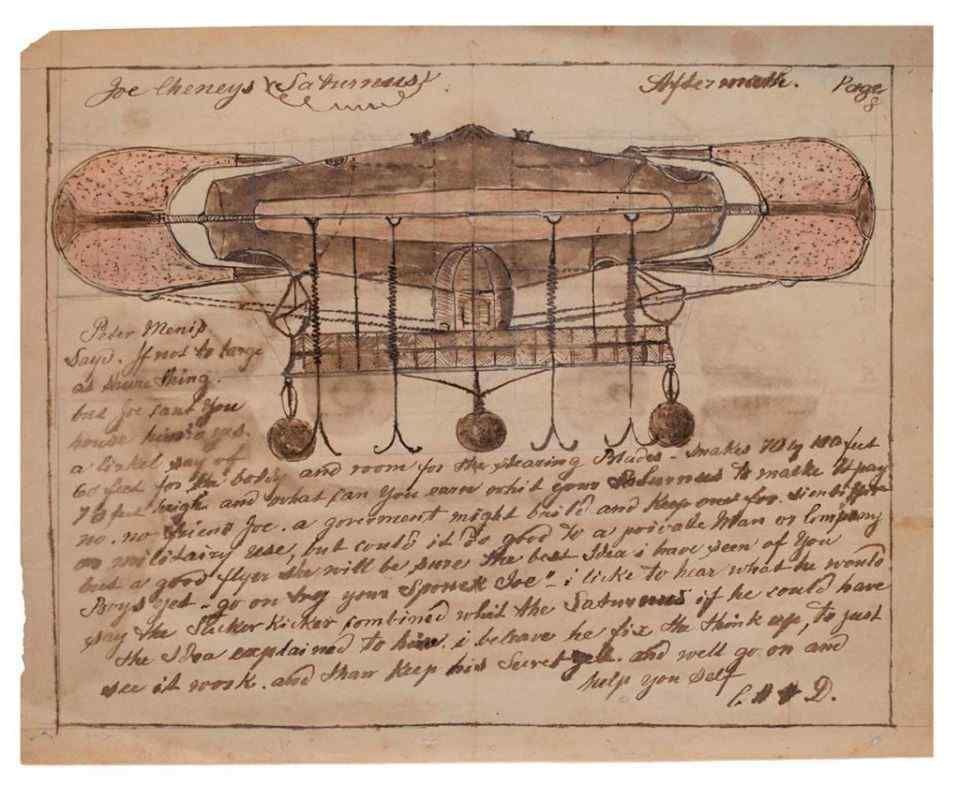 Joe Cheneys (Saturnus). Aftermath. Page
8
Peter Menis.
Says. If not to large
a shure thing.
but Joe cant You
house him. o yes.
a lickel say of
60 feet for the body and room for the stearing Blades - makes 70 by 100 feet
70 feet high. and what can You earn whit your Saturnus to make it pay
no. no friend Joe. a goverment might build and keep one for
or militairy use, but could it do good to a private Man or Company
but a good flyer she will be sure the best Idea i have seen of You
Boys yet - go on try your Joe" - i licke to hear what he would
say the combined whit the Saturnus if he could have
the Idea explained to him. i beleave he fix the think up, to just
see it work. and than keep his Secret yett. and well go on and
help you self
C. A A D.